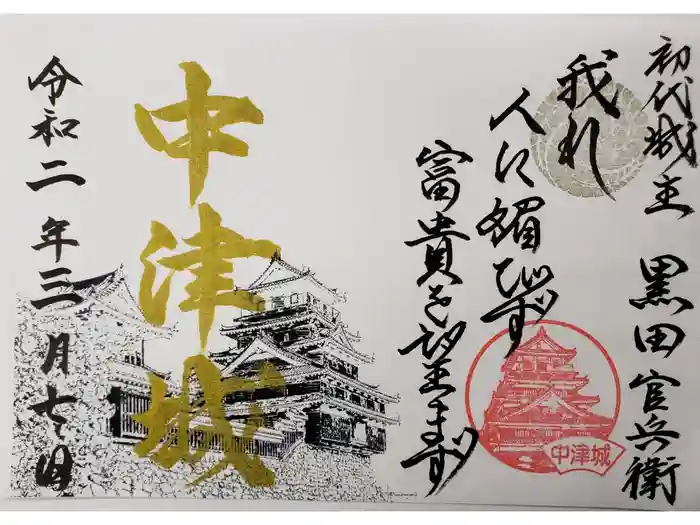 初代城主 黒田官兵衛
我れ
人に媚びず
富貴を望まず
中津城
中津城
令和二年三月七日